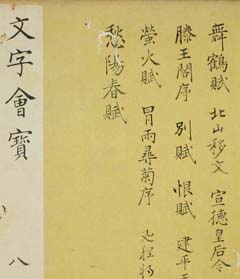 舞鶴賦 北山移文 宣德皇后令
滕王閣序 別賦 恨賦 建平
螢火賦 冒雨尋菊序
愁陽春賦
文字會寶 八